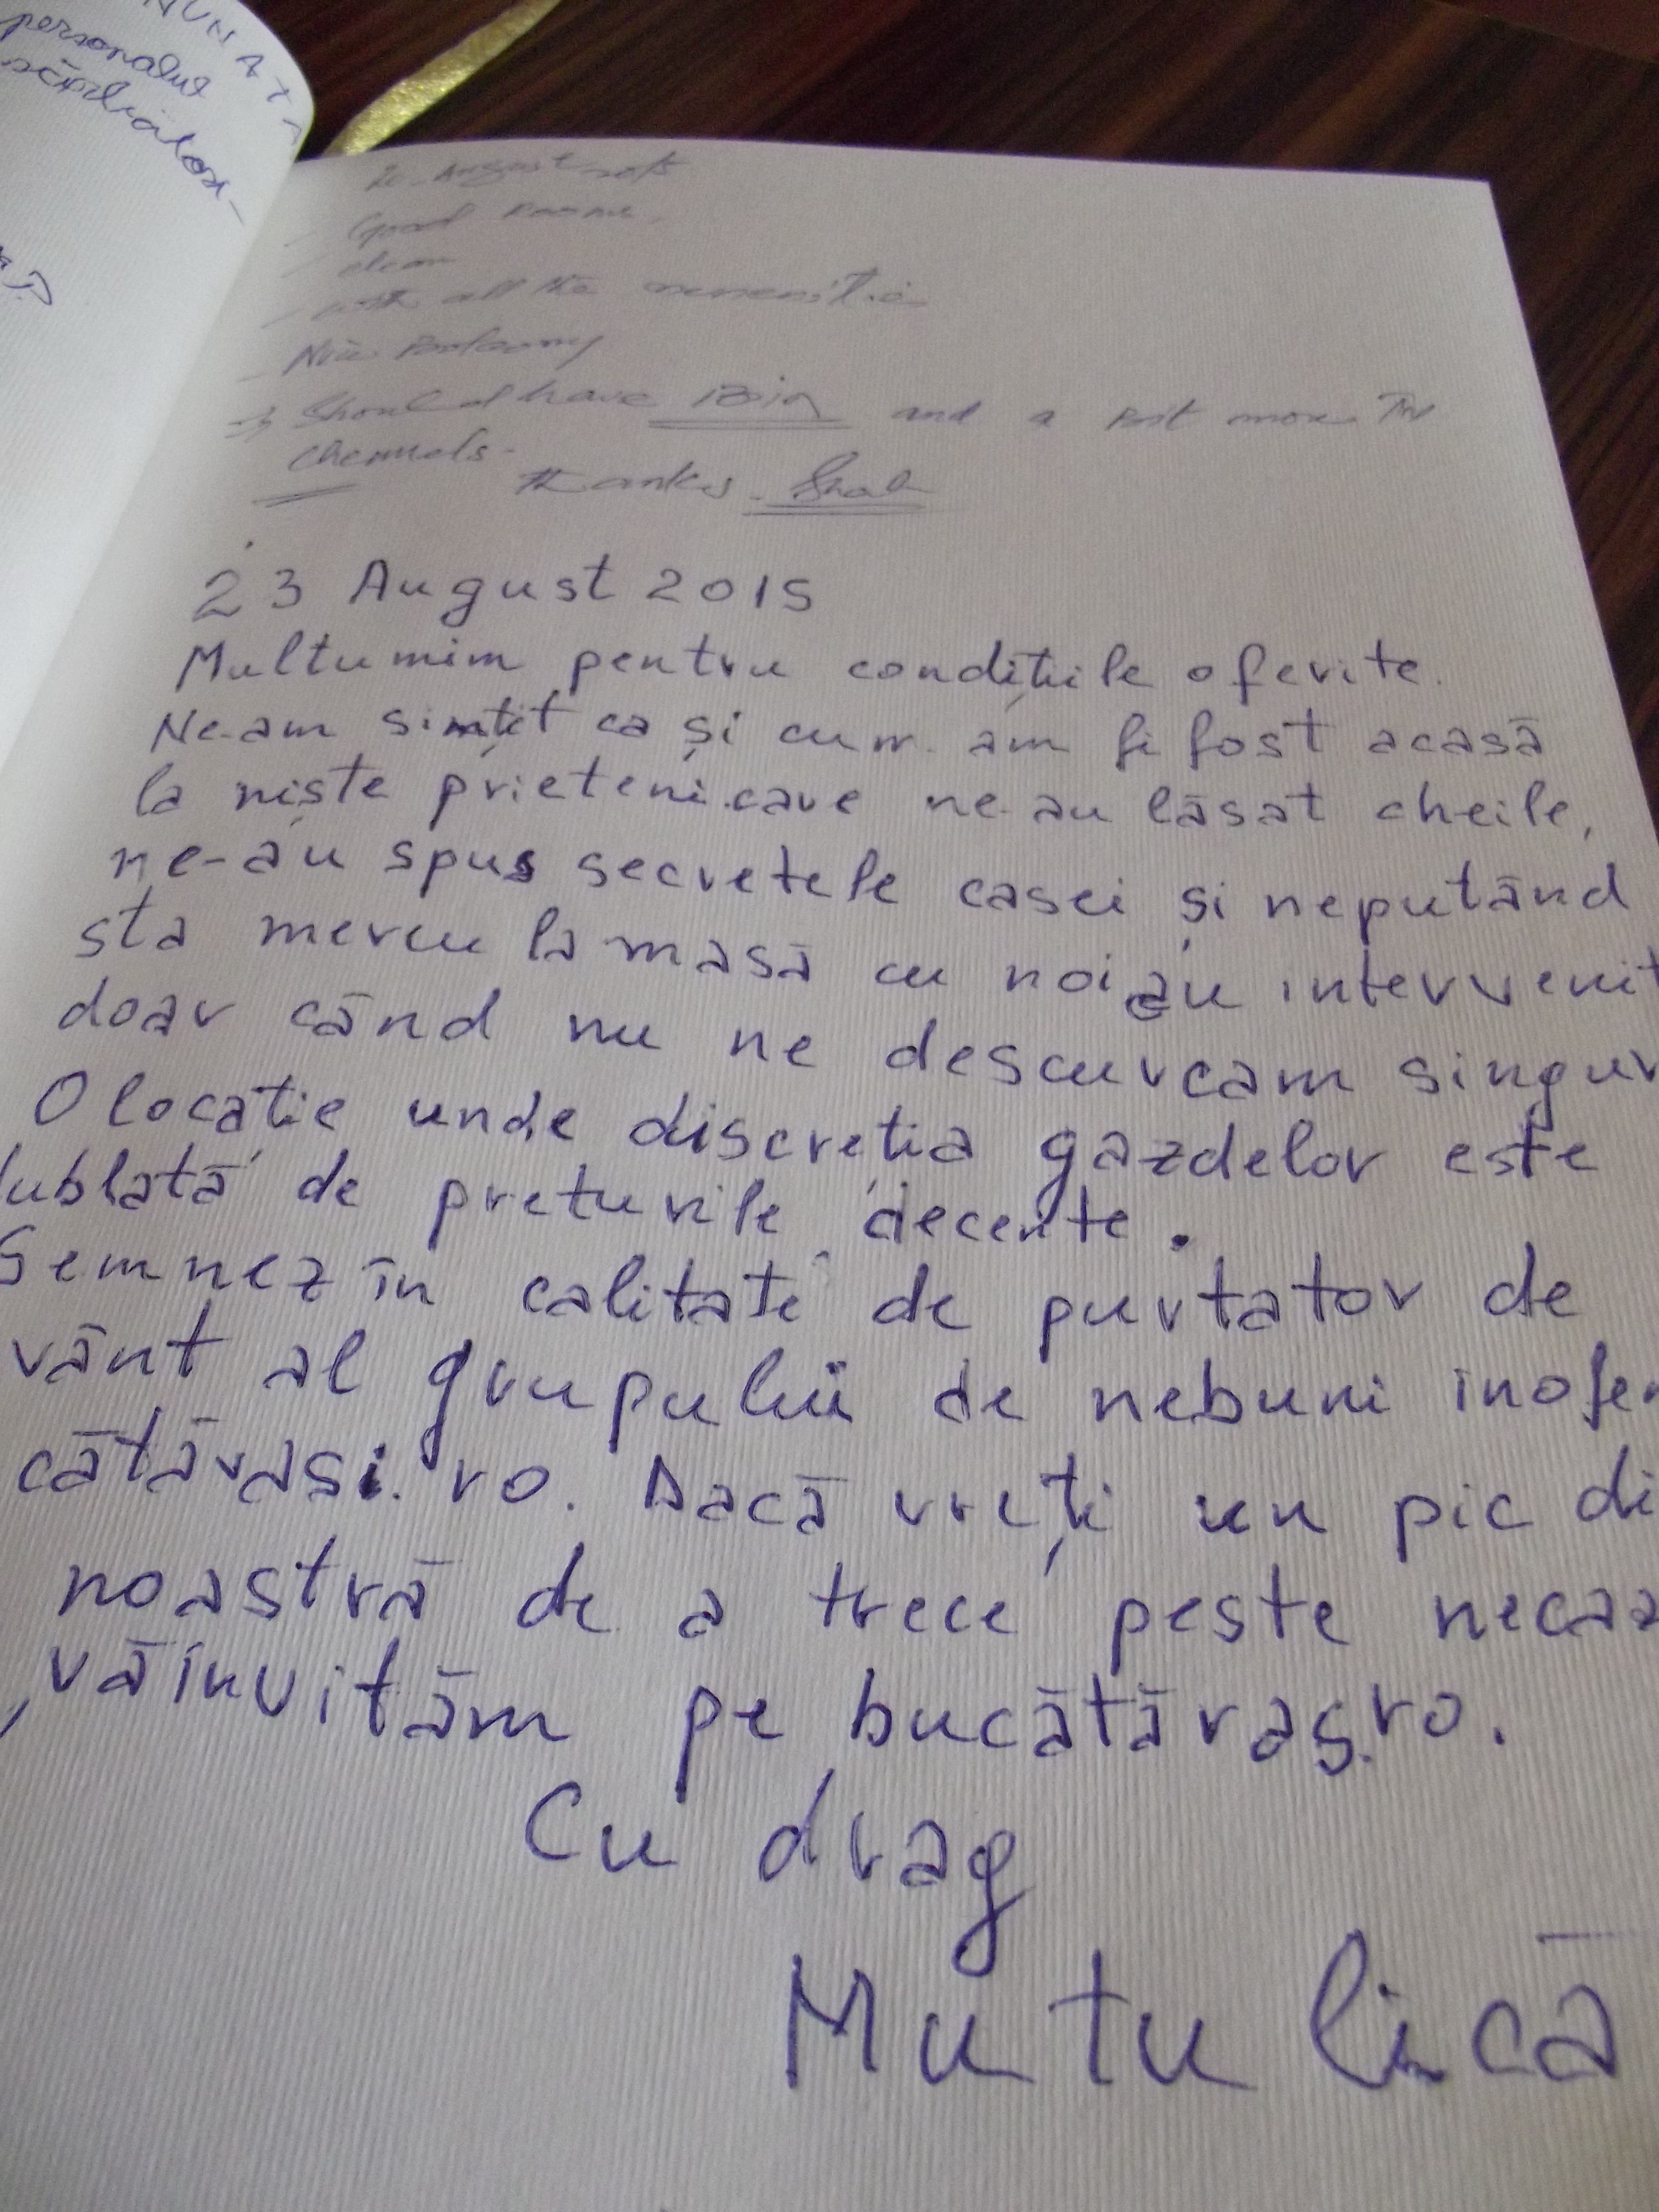 personalul
20 August 2015
- Good Rooms
- clean
- with all the
- Nice Balcony
→ Should have and a bit more TV
channels.
thanks.
23 August 2015
Multumim pentru condițiile oferite.
Ne-am simțit ca și cum am fi fost acasă
la niște prieteni care ne-au lăsat cheile,
ne-au spus secretele casei și neputând
sta mereu la masă cu noi au intervenit
doar când nu ne descurcam singur
O locație unde discreția gazdelor este
dublată de preturile decente.
Semnez în calitate de purtator de
vânt al grupului de nebuni inofen
cătărasi.ro. Dacă vreți un pic di
noastră de a trece peste necaz
vă invităm pe bucătăraș.ro.
Cu drag
Mutulică